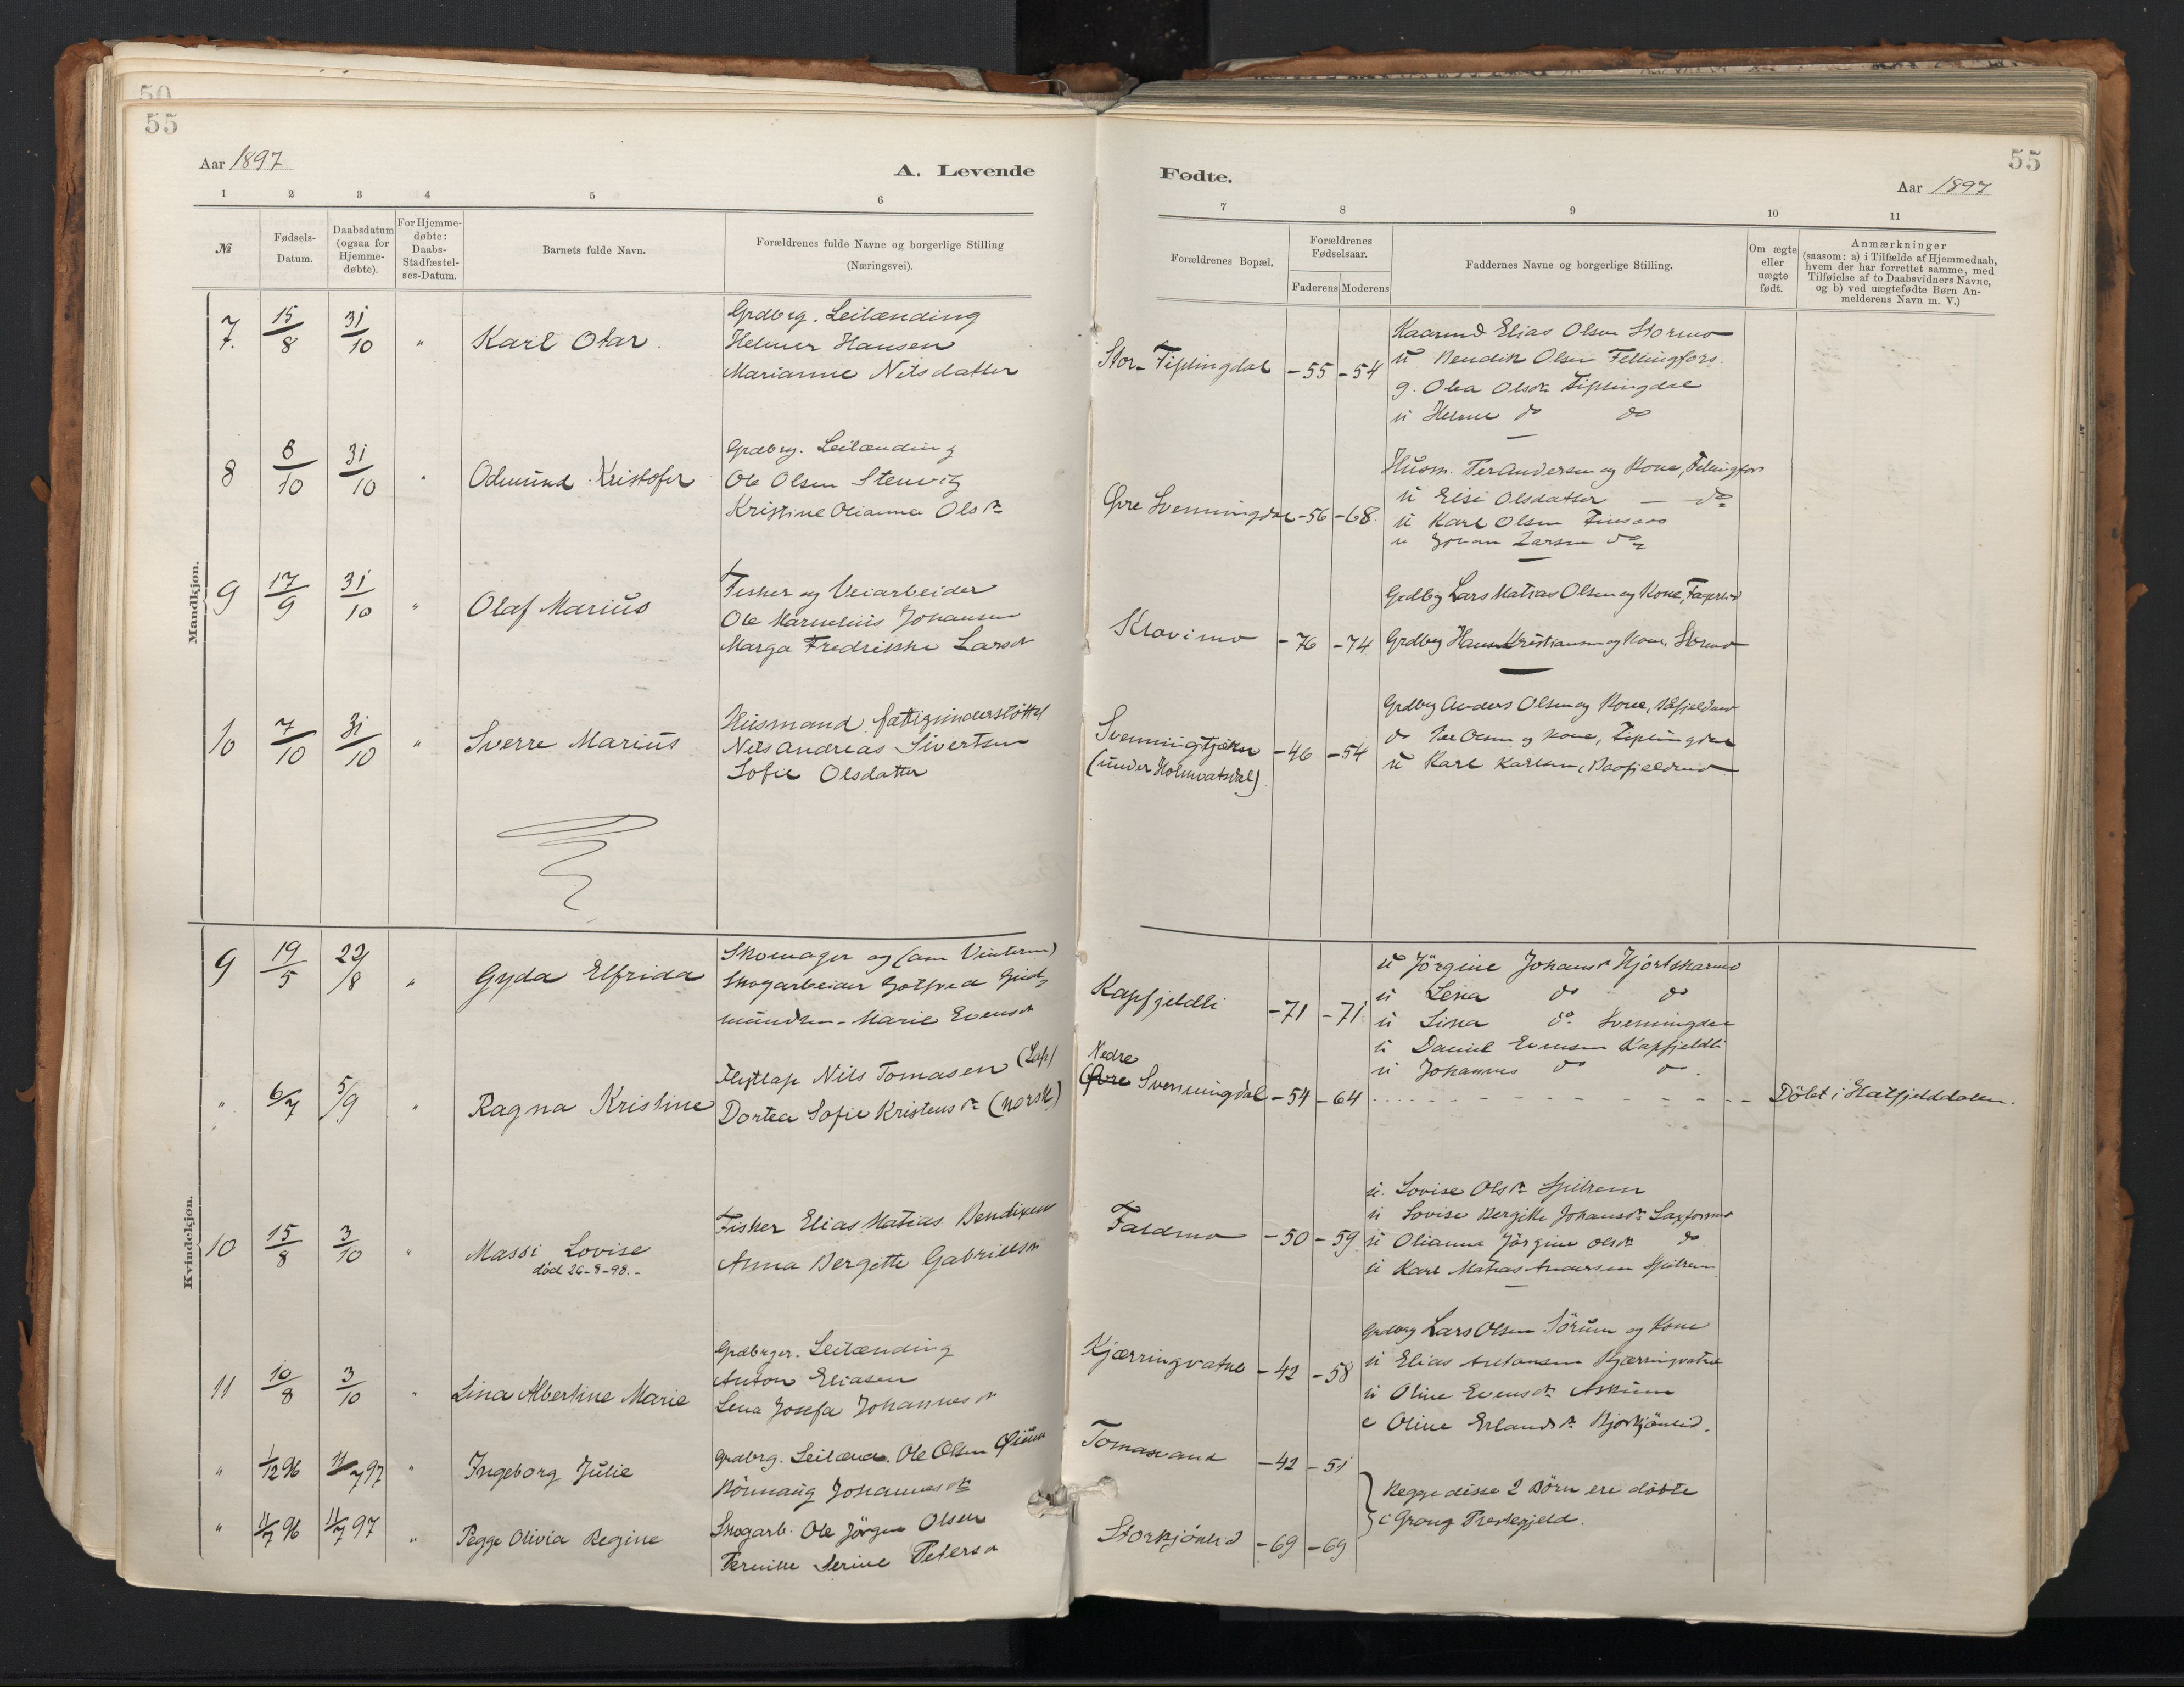 50
55
Aar 1897
A. Levende
1 2 3 4 5 6
№
Fødsels-Datum.
Daabsdatum (ogsaa for Hjemme-døbte).
For Hjemme-døbte: Daabs-Stadfæstel-ses-Datum.
Barnets fulde Navn.
Forældrenes fulde Navne og borgerlige Stilling
(Næringsvei).
Mandkjøn.
7. 15/8 31/10 " Karl Otar.
Grdbrg. Leilænding
Helmer Hansen
Marianne Nilsdatter
8 8/10 31/10 " Odmund Kristofer
Grdbrg. Leilænding
Ole Olsen Stenvig
Kristine Olianna Olsdr
9 17/9 31/10 " Olaf Marius
Fisker og Veiarbeider
Ole Kornelius Johansen
Marga Fredrikke Larsdr
10 7/10 31/10 " Sverre Marius
Husmand, fattigunderstøttet
Nils Andreas Sivertsen
Sofie Olsdatter
Kvindekjøn.
9 19/5 22/8 " Gyda Elfrida
Skomager og (om Vinteren)
Skogarbeider Gotfred Gud-
mundsen - Marie Evensdr
" 6/7 5/9 " Ragna Kristine
Flytlap Nils Tomasen (Lap)
Dortea Sofie Kristensdr (norsk)
10 15/8 3/10 " Massi Lovise
død 26-8-98.-
Fisker Elias Matias Bendixen
Anna Bergitte Gabrielsdr
11 10/8 3/10 " Lina Albertine Marie
Grdbrger. Leilænding
Anton Eliasen
Lena Josefa Johannesdr
" 1/12 96 11/7 97 " Ingeborg Julie
Grdbrg. Leilænd. Ole Olsen
Johannesdr
" 11/7 96 11/7 97 " Pegge Olivia Regine
Skogarb. Ole Jørgen Olsen
Pernille Serine Petersdr
55
Fødte.
Aar 1897
7 8 9 10 11
Forældrenes Bopæl.
Forældrenes Fødselsaar.
Faderens Moderens
Faddernes Navne og borgerlige Stilling.
Om ægte eller uægte født.
Anmærkninger
(saasom: a) i Tilfælde af Hjemmedaab, hvem der har forrettet samme, med Tilføielse af to Daabsvidners Navne, og b) ved uægtefødte Børn An-melderens Navn m. V.)
Stor-Fiplingdal -55 -54
Kaarmd Elias Olsen Stormo
u Bendik Olsen Fellingfors.
g. Olea Olsdr Fiplingdal
u Helene do do
Øvre Svenningdal -56 -68.
Husm. Per Andersen og Kone, Fellingfors
u Elsi Olsdatter - do
u Karl Olsen
u Johan Larsen do
Klovimo -76 -74
Grdbg Lars Matias Olsen og Kone, Fagerlid
Grdbrg Hans Kristiansen og Kone, Stormo
Svenningtjern
(under Holmvatsdal) -46 -54
Grdbrg Anders Olsen og Kone,
do Per Olsen og Kone, Fiplingdal
u Karl Karlsen,
Kapfjeldli -71 -71
u Jørgine Johansdr Hjortskarmo
u Lena do do
u Lina do Svenningdal
u Daniel Evensen Kapfjeldli
u Johannes do do.
Nedre
(Øvre Svenningdal -54 -64
Döbt i Hatfjelddalen.
Faldmo -50 -59
u. Lovise Olsdr Spilrem
u Lovise Bergitte Johansdr Laxforsmo
u Olianna Jørgine Olsdr do
u Karl Matias Andersen Spilrem
Kjærringvatne -42 -58
Grdbrg Lars Olsen Sörum og Kone
u Elias Antonsen Kjærringvatne
u Oline Evensdr Askum
e Oline Erlandsdr
Tomasvand -42 -51
Begge disse 2 Børn ere døbte
i Grong Prestegjeld.
Storkjönlid -69 -69